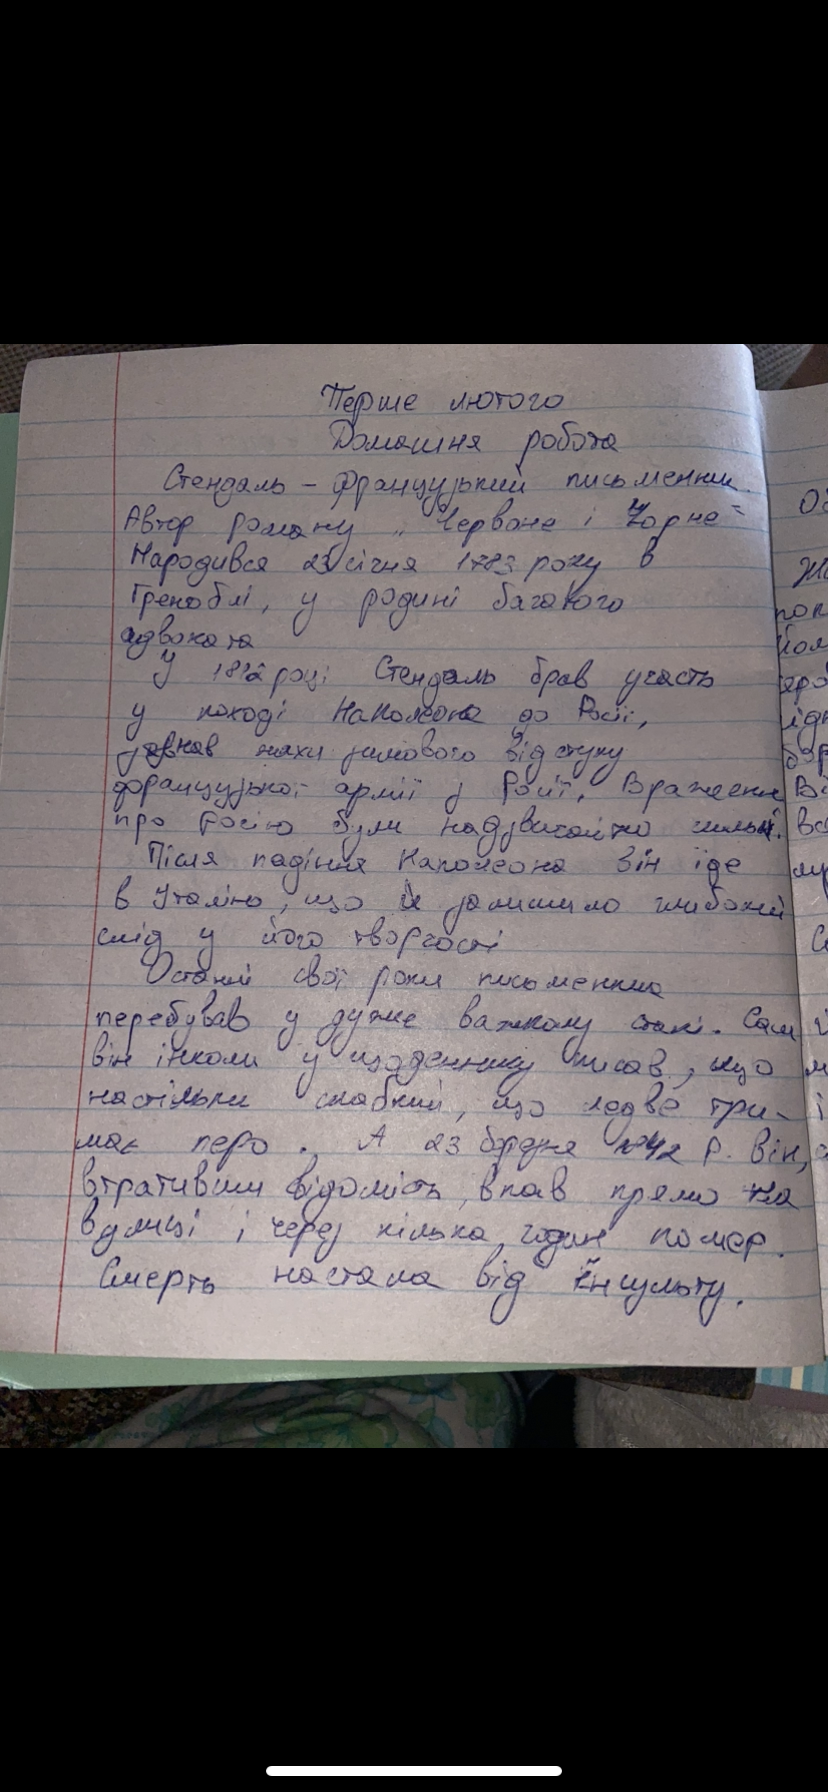 Перше лютого
Домашня робота
Стендаль – французький письменник.
Автор роману „Червоне і Чорне"
Народився 23 січня 1783 року в
Греноблі, у родині багатого
адвоката
У 1812 році Стендаль брав участь
у поході Наполеона до Росії,
зазнав жахи зимового відступу
французької армії у Росії. Враження
про Росію були надзвичайно сильні.
Після падіння Наполеона він їде
в Італію, що й залишило глибокий
слід у його творчості
Останні свої роки письменник
перебував у дуже важкому стані. Сам
він інколи у щоденнику писав, що
настільки слабкий, що ледве три-
має перо. А 23 березня 1842 р. він,
втративши відомість, впав прямо на
вулиці і через кілька годин помер.
Смерть настала від інсульту.